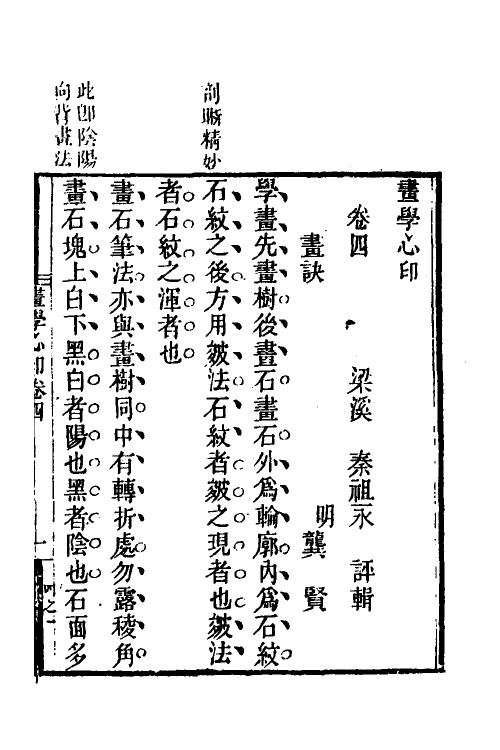 畫學心印
卷四　梁溪　秦祖永　評輯
畫訣　明龔　賢
學畫先畫樹後畫石畫石外爲輪廓內爲石紋
剖晰精妙
石紋之後方用皴法石紋者皴之現者也皴法
者石紋之渾者也
畫石筆法亦與畫樹同中有轉折處勿露稜角
此卽陰陽
向背畫法
畫石塊上白下黑白者陽也黑者陰也石面多
畫學心印卷四
一